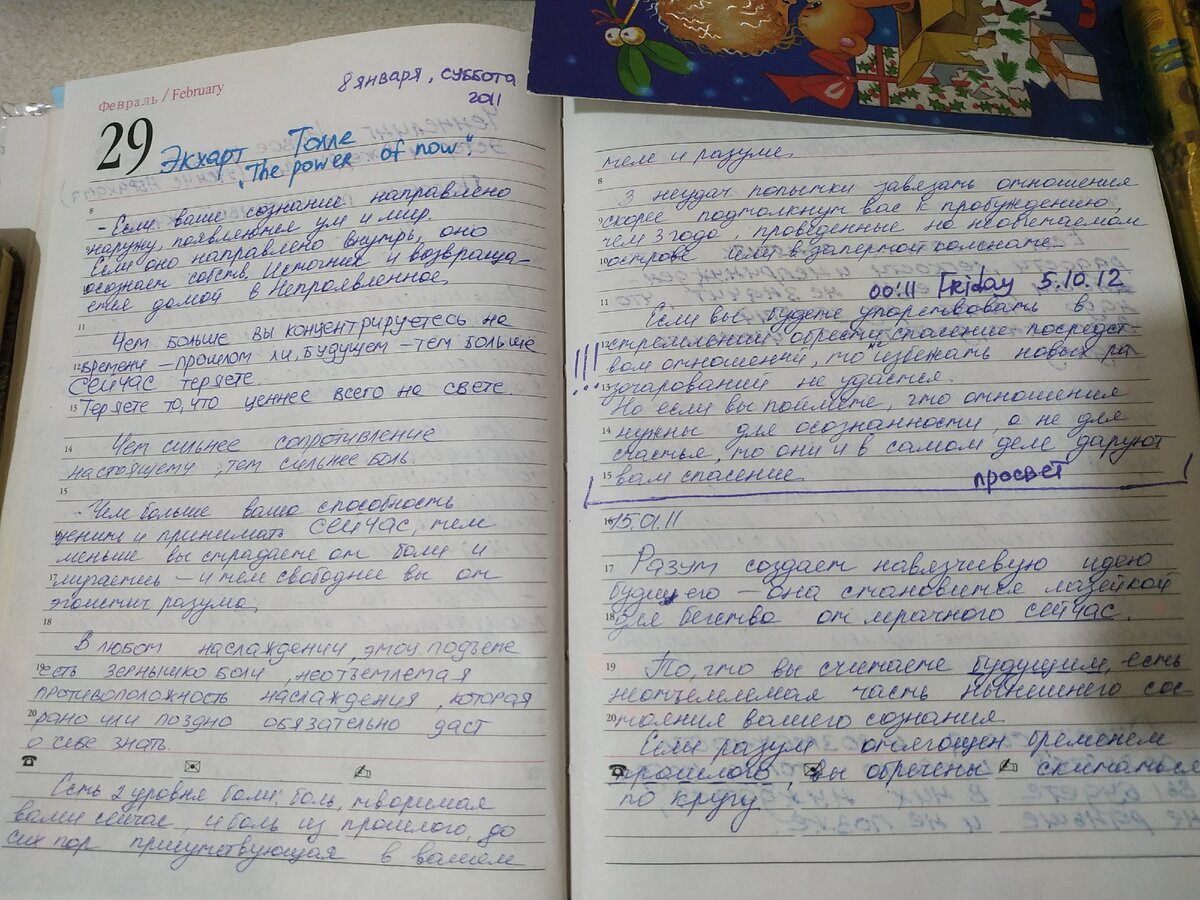 Февраль / February
8 января, суббота
2011
29
Экхарт Толле
"The power of now".
- Если ваше сознание направлено
наружу, появляются ум и мир.
Если оно направлено внутрь, оно
осознает собств. Источник и возвраща-
ется домой в Непроявленное.
Чем больше вы концентрируетесь на
времени – прошлом ли, будущем – тем больше
СЕЙЧАС теряете.
Теряете то, что ценнее всего на свете.
Чем сильнее сопротивление
настоящему, тем сильнее боль.
- Чем больше ваша способность
ценить и принимать СЕЙЧАС, тем
меньше вы страдаете от боли и
мучаетесь – и тем свободнее вы от
эгоистич разума.
В любом наслаждении, эмоц подъеме
есть зернышко боли, неотъемлемая
противоположность наслаждения, которая
рано или поздно обязательно даст
о себе знать.
Есть 2 уровня боли: боль, творимая
вами сейчас, и боль из прошлого, до
сих пор присутствующая в вашем
теле и разуме.
3 неудач попытки завязать отношения
скорее подтолкнут вас к пробуждению,
чем 3 года, проведенные на необитаемом
острове или в запертой комнате.
00:11 Friday 5.10.12
Если вы будете упорствовать в
стремлении обрести спасение посредст
вом отношений, то избежать новых ра
зочарований не удастся.
!!!
Но если вы поймете, что отношения
нужны для осознанности, а не для
счастья, то они и в самом деле даруют
вам спасение.
просвет
15.01.11
Разум создает навязчивую идею
будущего – она становится лазейкой
для бегства от мрачного сейчас.
То, что вы считаете будущим, есть
неотъемлемая часть нынешнего сос-
тояния вашего сознания.
Если разум отягощен бременем
прошлого, вы обречены скитаться
по кругу
8
9
10
11
12
13
14
15
16
17
18
19
20